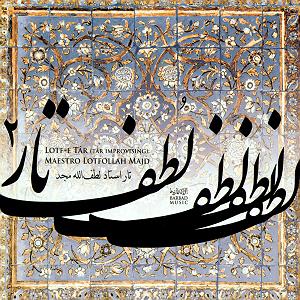 لطف تار ۲
LOTF-E TĀR (TĀR IMPROVISING)
MAESTRO LOTFOLLAH MAJD
تار استاد لطف‌الله مجد
BARBAD
MUSIC